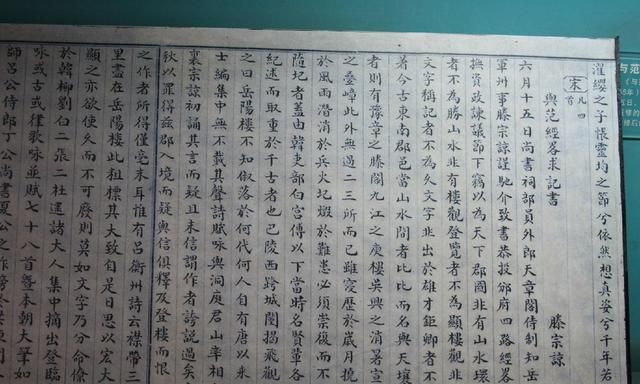 濯纓之子懷靈均之節兮依然想真姿兮千年若
宋 凡四首
與范經畧求記書
滕宗諒
六月十五日尚書祠部員外郎天章閣侍制知岳
軍州事滕宗諒謹馳介致書恭投邠府四路經畧
撫資政諫議節下竊以為天下郡國非有山水環
者不為勝山水非有樓觀登覽者不為顯樓觀非
文字稱記者不為久文字非出於雄才鉅卿者不
著今古東南郡邑當山水間者比比而名與天壤
者則有豫章之滕閣九江之庾樓吳興之消暑宣
之疊嶂此外無過二三所而已雖寖歷於歲月撓
於風雨潛消於兵火圮燬於難患必須崇復而不
隨圮者蓋由韓吏部白宮傅以下當時名賢輩各
紀述而取重於千古者也巴陵西跨城闉揭飛觀
之曰岳陽樓不知俶落於何代何人自有唐以來
士編集中無不載其聲詩賦咏與洞庭君山率相
襄宗諒初誦其言而疑且未信謂作者誇說過矣
秋以罪得兹郡入境而疑與信俱釋及登樓而恨
之作者所得僅毫末耳惟有呂衡州詩云襟帶三
里盡在岳陽樓此粗標其大致自是日思以宏大
顯之亦欲使久而不可廢則莫如文字乃分命僚
於韓柳劉白二張二杜逮諸大人集中摘出登臨
咏或古或律歌咏並賦七十八首暨本朝大筆如
師呂公侍郎丁公尚書夏公之作